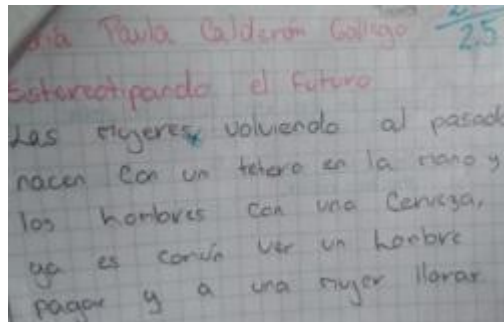 Paula Calderón Gallego 2.5
Estereotipando el futuro
Las mujeres volviendo al pasado
nacen con un tetero en la mano y
los hombres con una cerveza,
ya es común ver un hombre
pagar y a una mujer llorar